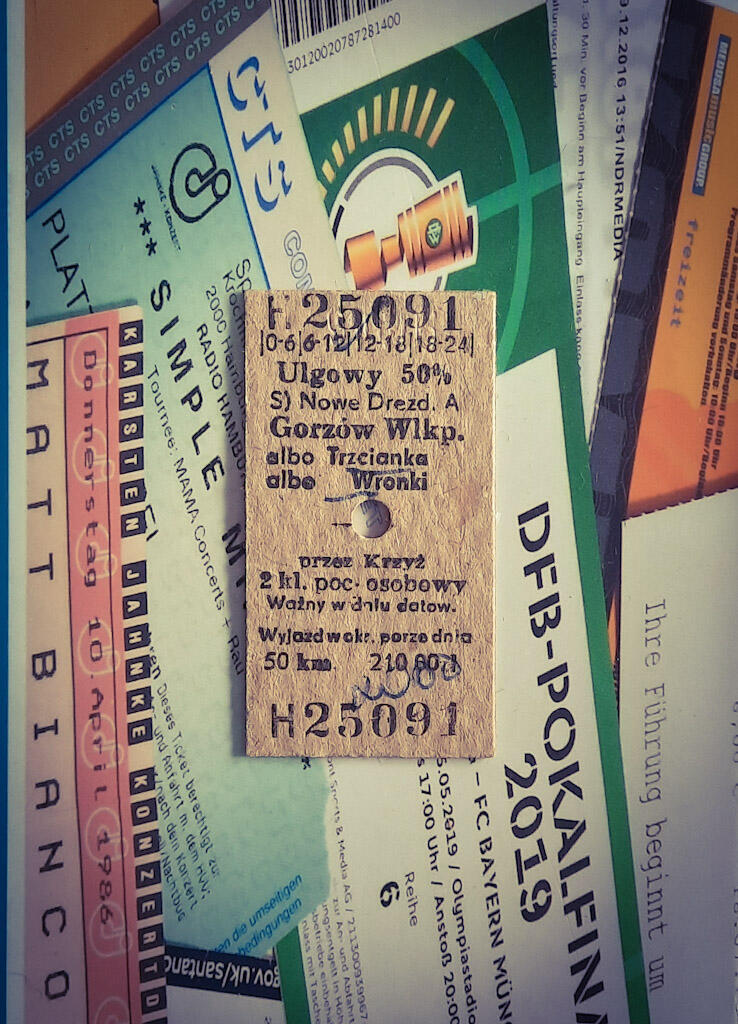 H 25091
|0-6|6-12|12-18|18-24|
Ulgowy 50%
S) Nowe Drezd. A
Gorzów Wlkp.
albo Trzcianka
albo Wronki
przez Krzyż
2 kl. poc. osobowy
Ważny w dniu datow.
Wyjazd w okr. porze dnia
50 km.
H25091
CTS CTS CTS CTS CTS CTS
CTS CTS CTS CTS CTS CTS
CTS
PLAT
*** SIMPLE M
2000 Hambu
RADIO HAMBU
Tournee: MAMA Concerts + Rau
Dieses Ticket berechtigt zur
und Anfahrt m. dem HVV
nach dem Konzert
die umseitigen
bedingungen
KARSTEN JAHNKE KONZERTD
Donnerstag 10.April 1986
MATT BIANCO
gov.uk/santan
30120020787281400
DFB-POKALFINA
2019
– FC BAYERN MÜN
5.05.2019 / Olympiastadio
17:00 Uhr / Anstoß 20:00
Reihe
6
Sports & Media AG / 211300939967
.12.2016 13:51/NDRMEDIA
30 Min. vor Beginn am Haupteingang. Einlass
MEDUSAmusicGROUP
freizeit
Programmänderung vorbehalten
Ihre Führung beginnt um